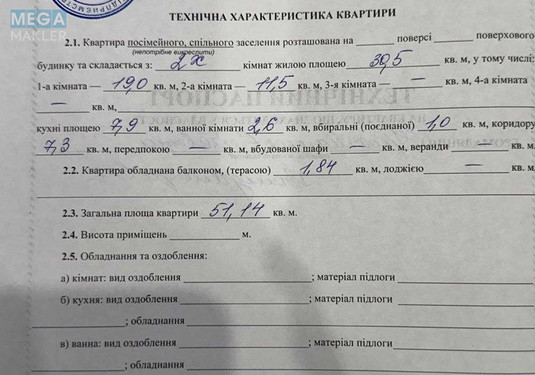 MEGA
MAKLER
ТЕХНІЧНА ХАРАКТЕРИСТИКА КВАРТИРИ
2.1. Квартира посімейного, спільного заселення розташована на ______ поверсі ______ поверхового
(непотрібне викреслити)
будинку та складається з: 2х кімнат жилою площею 30,5 кв. м, у тому числі:
1-а кімната — 19,0 кв. м, 2-а кімната — 11,5 кв. м, 3-я кімната — — кв. м, 4-а кімната
— кв. м,
кухні площею 7,9 кв. м, ванної кімнати 2,6 кв. м, вбиральні (поєднаної) 1,0 кв. м, коридору
7,3 кв. м, передпокою — кв. м, вбудованої шафи — кв. м, веранди — кв. м.
2.2. Квартира обладнана балконом, (терасою) 1,84 кв. м, лоджією — кв. м.
2.3. Загальна площа квартири 51,14 кв. м.
2.4. Висота приміщень ______ м.
2.5. Обладнання та оздоблення:
а) кімнат: вид оздоблення ______; матеріал підлоги ______
б) кухня: вид оздоблення ______; матеріал підлоги ______
______; обладнання ______
в) ванна: вид оздоблення ______; матеріал підлоги ______
______; обладнання ______